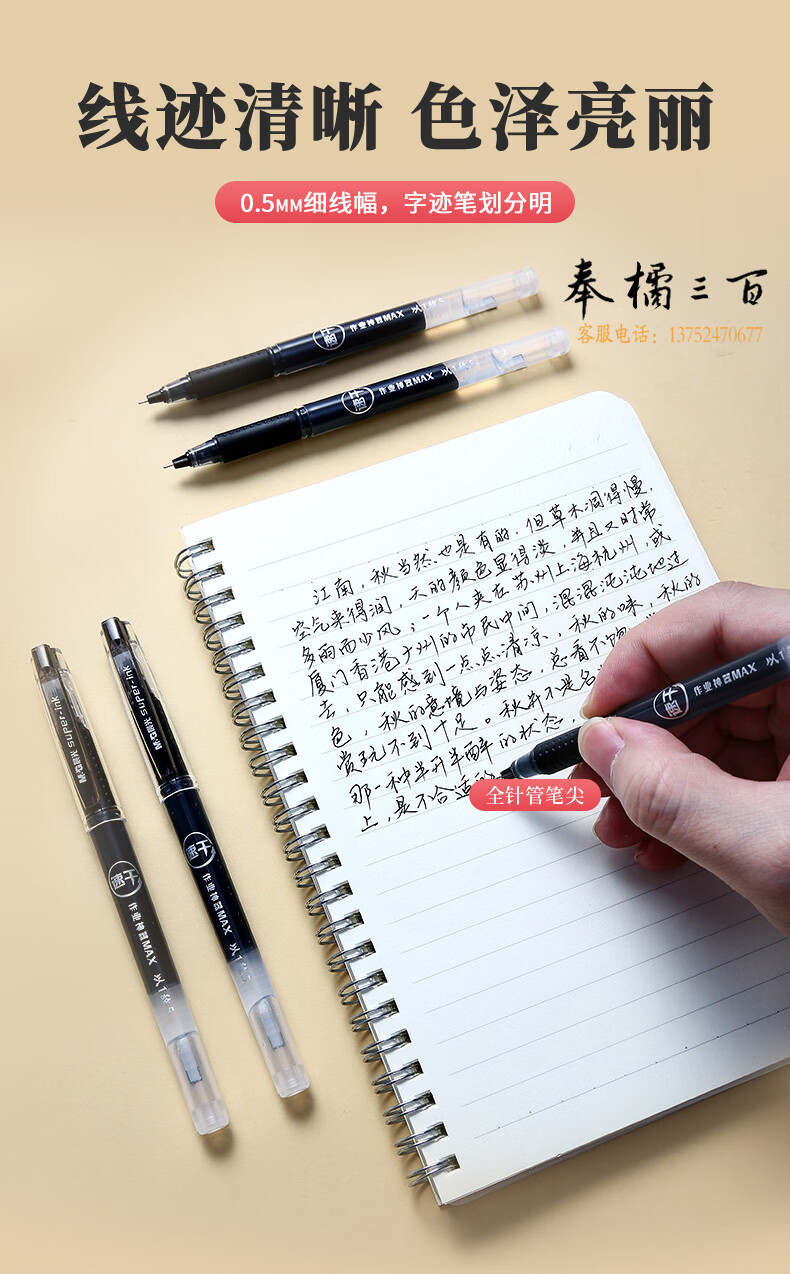 线迹清晰 色泽亮丽
0.5MM细线幅，字迹笔划分明
奉橘三百
客服电话：13752470677
速干 作业神器MAX 以1抵5
速干 作业神器MAX 以1抵5
江南，秋当然也是有的，但草木凋得慢，
空气来得润，天的颜色显得淡，并且又时常
多雨而少风；一个人夹在苏州上海杭州，或
厦门香港广州的市民中间，混混沌沌地过
去，只能感到一点点清凉，秋的味，秋的
色，秋的意境与姿态，总看不饱
赏玩不到十足。秋并不是名
那一种半开半醉的状态，
上，是不合适的
速干 作业神器MAX 以1
全针管笔尖
M&G晨光 SUPER-INK
速干 作业神器MAX 以1抵5
M&G晨光 SUPER-INK
速干 作业神器MAX 以1抵5